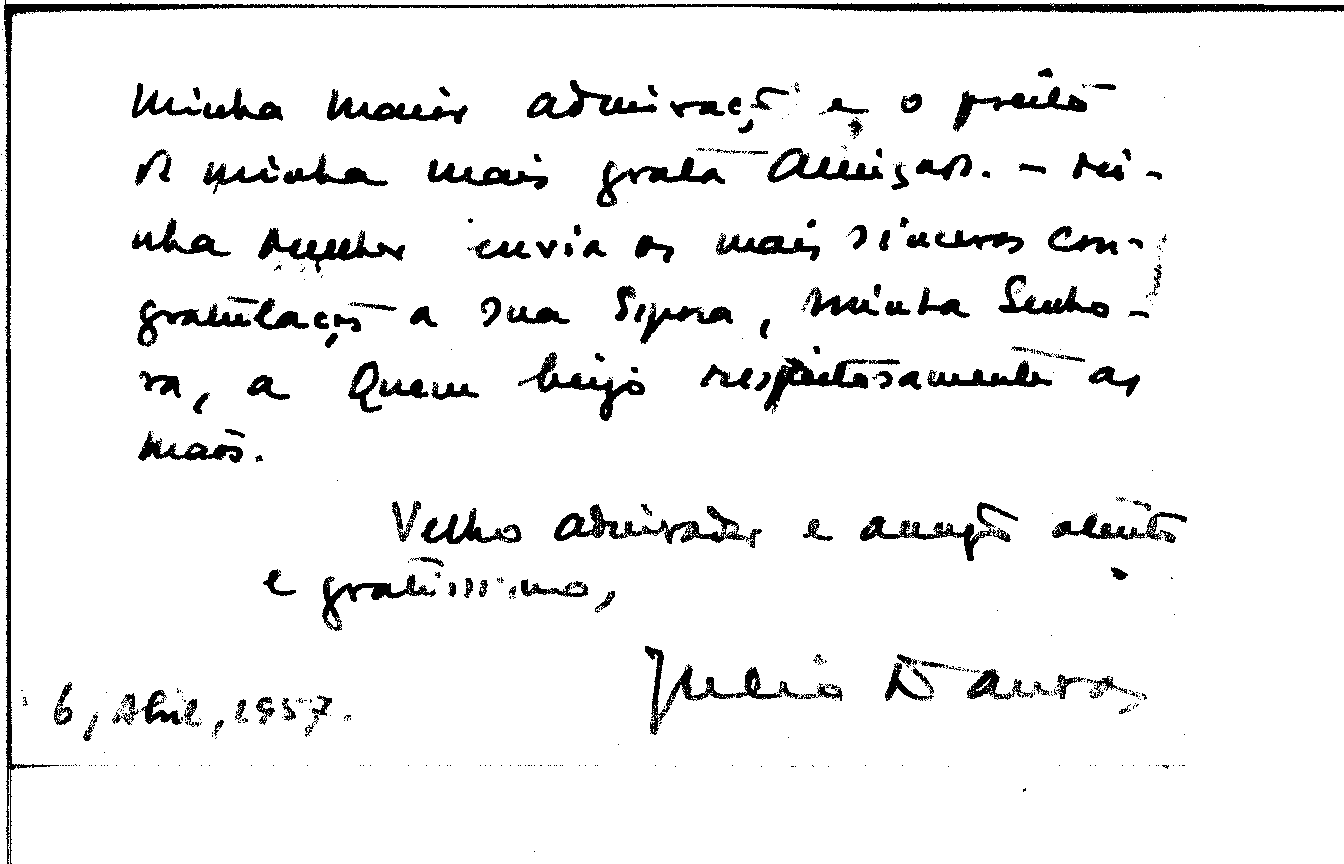 minha maior admiração e o preito
da minha mais grata amizade. – Mi-
nha mulher envia as mais sinceras con-
gratulações a sua Esposa, minha Senho-
ra, a quem beijo respeitosamente as
mãos.
Velho admirador e amigo atento
e gratíssimo,
Julio Dantas
6, Abril, 1957.